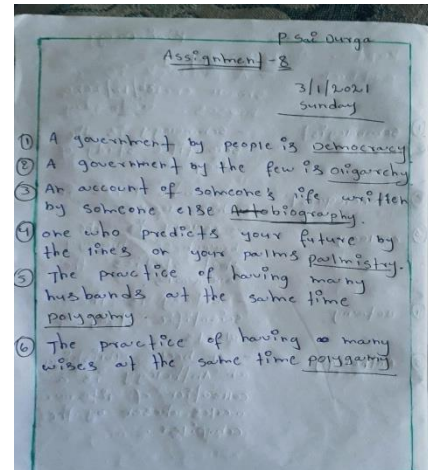 P Sai Durga
Assignment - 8
3/1/2021
Sunday
① A government by people is Democracy
② A government by the few is Oligarchy
③ An account of someone's life written
by someone else Autobiography.
④ one who predicts your future by
the lines on your palms palmistry.
⑤ The practice of having many
husbands at the same time
polygamy.
⑥ The practice of having many
wives at the same time polygamy